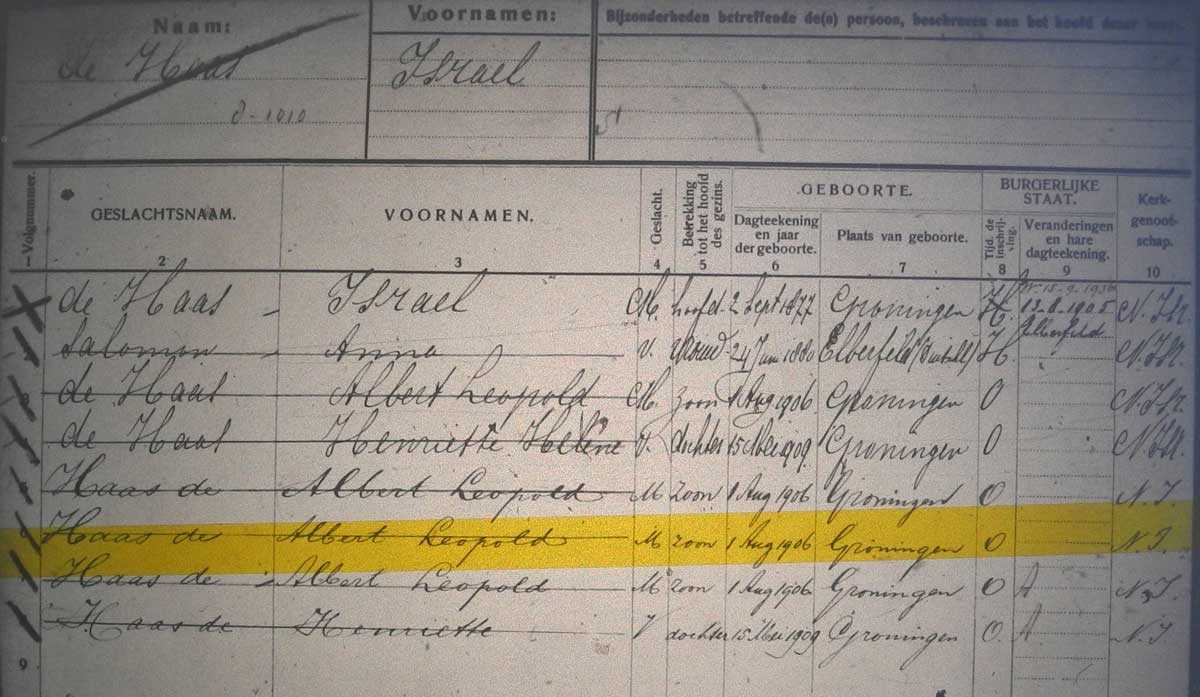 Naam:
Voornamen:
Bijzonderheden betreffende de(n) persoon, beschreven aan het hoofd dezer
de Haas
Israel
d-1010
Volgnummer.
GESLACHTSNAAM.
VOORNAMEN.
Geslacht.
Betrekking tot het hoofd des gezins.
GEBOORTE.
Dagteekening en jaar der geboorte.
Plaats van geboorte.
BURGERLIJKE STAAT.
Tijd. de inschrijving.
Veranderingen en hare dagteekening.
Kerkgenootschap.
1 2 3 4 5 6 7 8 9 10
W. 15-9-1936
de Haas Israel M. hoofd 2 Sept 1877 Groningen H. 13-8-1905 N. Isr.
Elberfeld
Salomon Anna V. 24 Jun 1880 Elberfeld H. N. Isr.
de Haas Albert Leopold M. zoon 1 Aug 1906 Groningen O N. Isr.
de Haas Henriette Helène V. dochter 15 Mei 1909 Groningen O N. Isr.
Haas de Albert Leopold M zoon 1 Aug 1906 Groningen O N. I.
Haas de Albert Leopold M zoon 1 Aug 1906 Groningen O N. I.
Haas de Albert Leopold M zoon 1 Aug 1906 Groningen O A N. I.
Haas de Henriette V dochter 15 Mei 1909 Groningen O. A N. I.
9